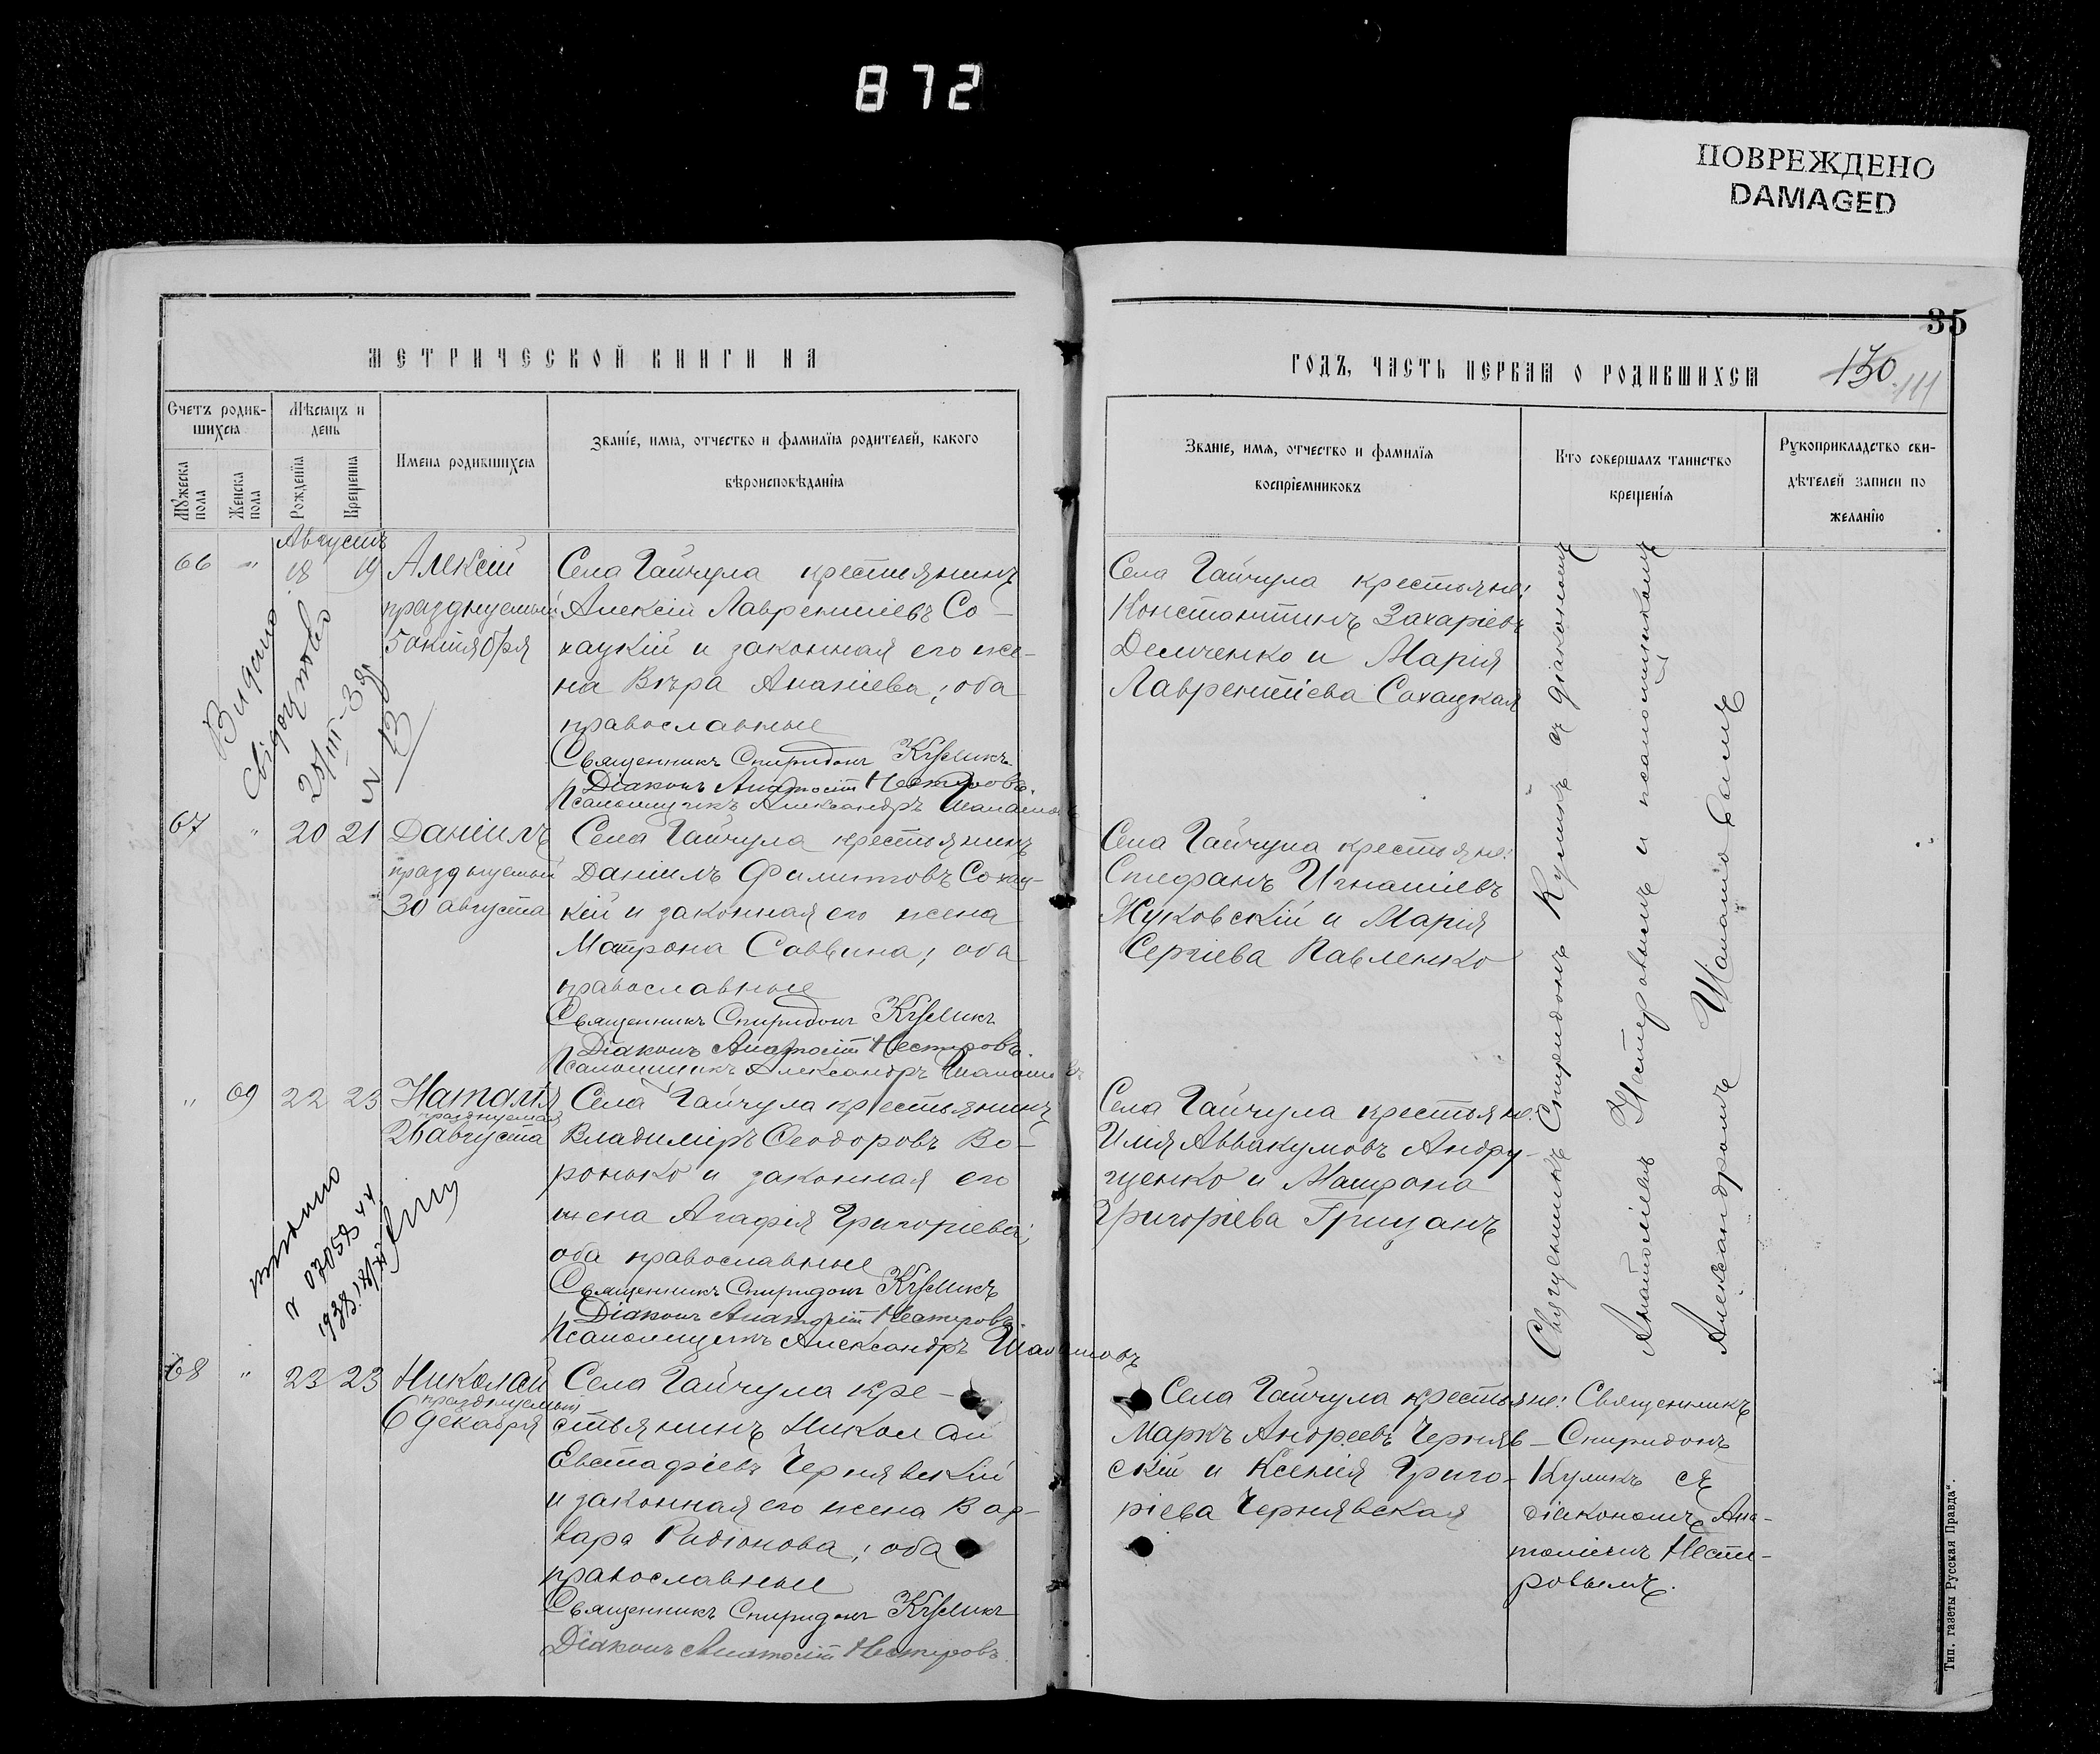 872
ПОВРЕЖДЕНО
DAMAGED
МЕТРИЧЕСКОЙ КНИГИ НА
Счетъ родив-
шихся
Мѣсяцъ и
день
Имена родившихся
Званіе, имя, отчество и фамилія родителей, какого
вѣроисповѣданія
Мужеска
пола
Женска
пола
Рожденія
Крещенія
Августъ
66 " 18 19 Алексій
празднуемый
5 октября
Села Гайчула крестьянинъ
Алексій Лаврентіевъ Со-
хацкій и законная его же-
на Вѣра Ананіева; оба
православные
Священникъ Спиридонъ Куликъ
Діаконъ Анатолій Нестеровъ.
Псаломщикъ Александръ
Видано
свідоцтво
25/III-39
N 13
67 " 20 21 Даніилъ
празднуемый
30 августа
Села Гайчула крестьянинъ
Даніилъ Филиповъ Сохац-
кій и законная его жена
Матрона Саввина; оба
православные
Священникъ Спиридонъ Куликъ
Діаконъ Анатолій Нестеровъ.
Псаломщикъ Александръ
" 69 22 23 Наталія
празднуемая
26 августа
Села Гайчула крестьянинъ
Владиміръ Ѳеодоровъ Во-
ронько и законная его
жена Агафія Григоріева;
оба православные
Священникъ Спиридонъ Куликъ
Діаконъ Анатолій Нестеровъ
Псаломщикъ Александръ
видано
070573
1938
68 " 23 23 Николай
празднуемый
6 декабря
Села Гайчула кре-
стьянинъ Николай
Евстафіевъ Чернявскій
и законная его жена Вар-
вара Радіонова; оба
православные
Священникъ Спиридонъ Куликъ
Діаконъ Анатолій Нестеровъ.
35
ГОДЪ, ЧАСТЬ ПЕРВАЯ О РОДИВШИХСЯ
130
111
Званіе, имя, отчество и фамилія
воспріемниковъ
Кто совершалъ таинство
крещенія
Рукоприкладство сви-
дѣтелей записи по
желанію
Села Гайчула крестьяне:
Константинъ Захаріевъ
Демченко и Марія
Лаврентіева Сохацкая
Села Гайчула крестьяне:
Стефанъ Игнатіевъ
Жуковскій и Марія
Сергіева Павленко
Села Гайчула крестьяне:
Илія Аввакумовъ Андру-
щенко и Матрона
Григоріева Грицанъ
Священникъ Спиридонъ Куликъ съ діакономъ
Анатоліемъ Нестеровымъ и псаломщикомъ
Александромъ
Села Гайчула крестьяне:
Маркъ Андреевъ Черняв-
скій и Ксенія Григо-
ріева Чернявская
Священникъ
Спиридонъ
Куликъ съ
діакономъ Ана-
толіемъ Несте-
ровымъ.
Тип. газеты Русская Правда".